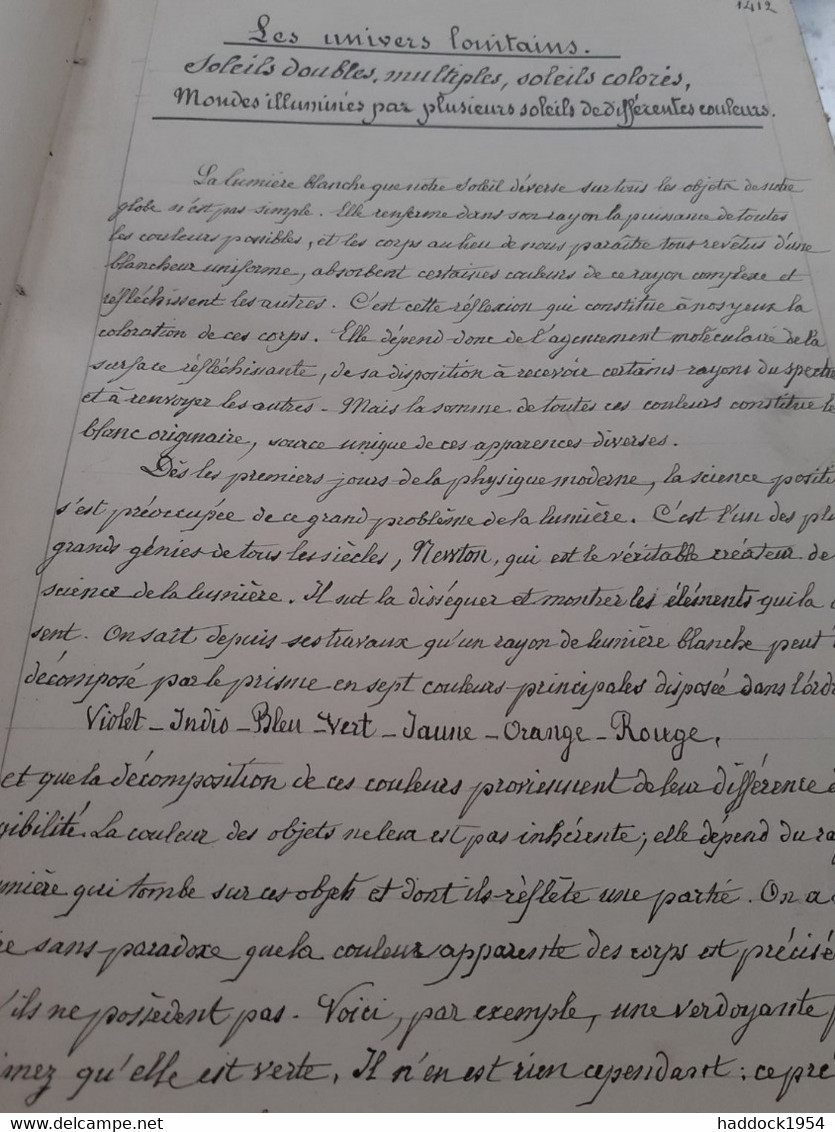 1412
Les univers lointains.
Soleils doubles, multiples, soleils colorés,
Mondes illuminés par plusieurs soleils de différentes couleurs.
La lumière blanche que notre Soleil déverse sur tous les objets de notre
globe n'est pas simple. Elle renferme dans son rayon la puissance de toutes
les couleurs possibles, et les corps au lieu de nous paraître tous revêtus d'une
blancheur uniforme, absorbent certaines couleurs de ce rayon complexe et
réfléchissent les autres. C'est cette réflexion qui constitue à nos yeux la
coloration de ces corps. Elle dépend donc de l'agencement moléculaire de la
surface réfléchissante, de sa disposition à recevoir certains rayons du spectre
et à renvoyer les autres - Mais la somme de toutes ces couleurs constitue le
blanc originaire, source unique de ces apparences diverses.
Dès les premiers jours de la physique moderne, la science positi
s'est préoccupée de ce grand problème de la lumière. C'est l'un des plu
grands génies de tous les siècles, Newton, qui est le véritable créateur de
science de la lumière. Il sut la disséquer et montrer les éléments qui la
sent. On sait depuis ses travaux qu'un rayon de lumière blanche peut
décomposé par le prisme en sept couleurs principales disposée dans l'ordr
Violet - Indio - Bleu - Vert - Jaune - Orange - Rouge,
et que la décomposition de ces couleurs proviennent de leur différence
gibilité. La couleur des objets ne leur est pas inhérente; elle dépend du ra
mière qui tombe sur ces objets et dont ils rèflète une partie. On a
re sans paradoxe que la couleur apparente des corps est précisé
'ils ne possèdent pas. Voici, par exemple, une verdoyante p
imez qu'elle est verte. Il n'en est rien cependant: ce pré
haddock1954